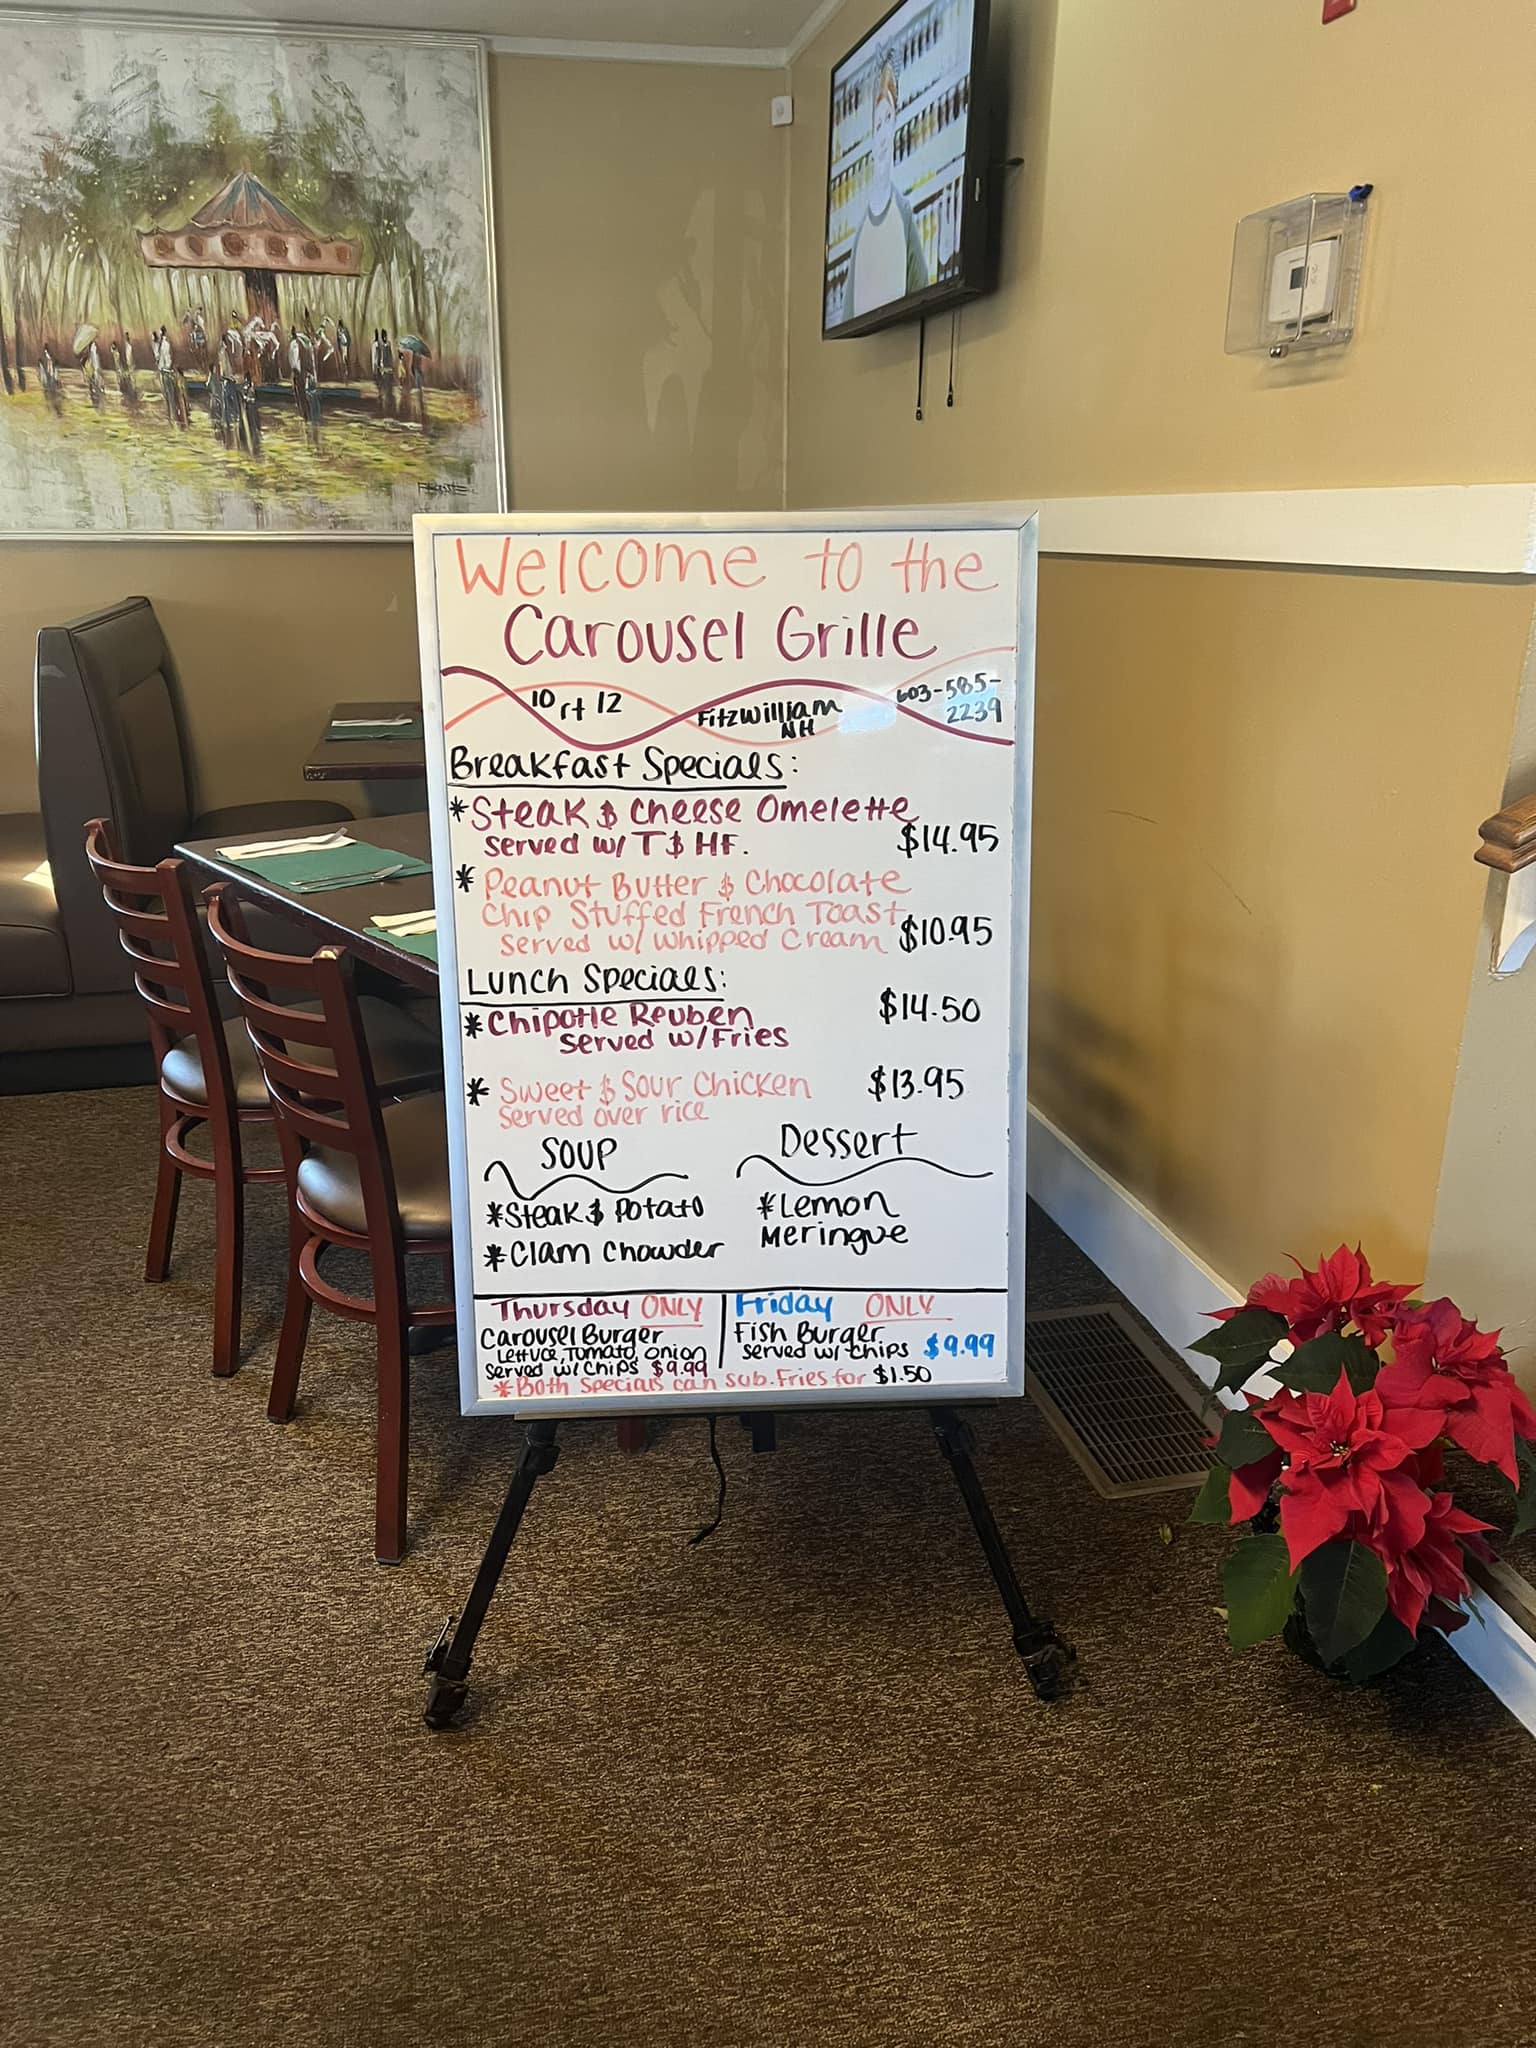 Welcome to the
Carousel Grille
10 rt 12
Fitzwilliam
NH
603-585-
2239
Breakfast Specials:
*Steak & Cheese Omelette
served w/ T & HF. $14.95
* Peanut Butter & Chocolate
Chip Stuffed French Toast
served w/ whipped Cream $10.95
Lunch Specials:
*Chipotle Reuben $14.50
served w/Fries
* Sweet & Sour Chicken $13.95
served over rice
Soup
*Steak & Potato
*Clam Chowder
Dessert
*Lemon
Meringue
Thursday ONLY
Carousel Burger
Lettuce, Tomato, onion
served w/ Chips $9.99
Friday ONLY
Fish Burger
served w/ chips $9.99
*Both Specials can sub. Fries for $1.50